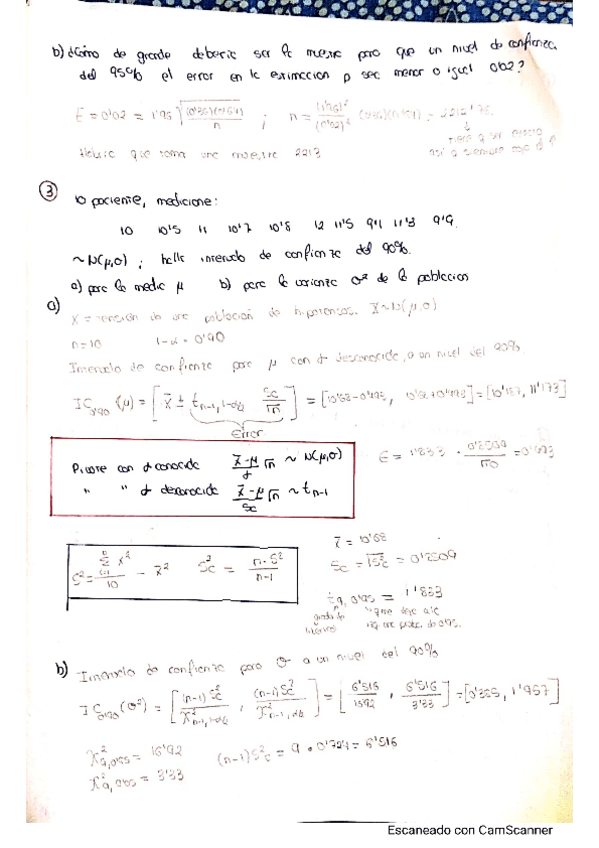 b) ¿Cómo de grande debería ser la muestra para que un nivel de confianza
del 95% el error en la estimación p sea menor o igual 0'02?
E = 0'02 = 1'96 √((0'36)(0'64)/n) ; n = (1'96)²/(0'02)² (0'36)(0'64) = 2212'76
Habría que tomar una muestra 2213
③ 10 paciente, medicione:
10 10'5 11 10'7 10'8 12 11'5 9'1 11'3 9'9
~N(μ,σ) ; halla intervalo de confianza del 90%.
a) para la media μ b) para la varianza σ² de la población
a)
X = tensión de una población de hipertensos. X~N(μ,σ)
n=10 1-α = 0'90
Intervalo de confianza para μ con σ desconocida, a un nivel del 90%
IC0'90 (μ) = [x̄ ± tn-1,1-α/2 Sc/√n] = [10'68-0'493, 10'68+0'493] = [10'187, 11'173]
Error
Pivote con σ conocida (x̄-μ)/σ √n ~ N(μ,σ)
" " σ desconocida (x̄-μ)/Sc √n ~ tn-1
E = 1'833 · 0'8509/√10 = 0'493
S² = Σ x²/10 - x̄² Sc² = n·S²/n-1
x̄ = 10'68
Sc = √Sc² = 0'8509
t9, 0'95 = 1'833
b) Intervalo de confianza para σ² a un nivel del 90%
IC0'90 (σ²) = [(n-1)Sc²/χ²n-1,1-α/2 , (n-1)Sc²/χ²n-1,α/2] = [6'516/16'92 , 6'516/3'33] = [0'385, 1'957]
χ²9,0'95 = 16'92 (n-1)Sc² = 9 · 0'724 = 6'516
χ²9,0'05 = 3'33
Escaneado con CamScanner